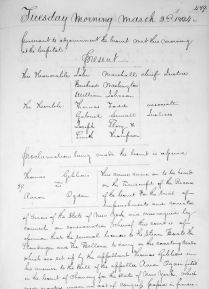 489
Tuesday Morning March 2d 1824.
Pursuant to adjournment the Court met this morning
at the Capitol.
Present
The Honorable John Marshall chief Justice
Bushrod Washington
William Johnson
The Honble. Thomas Todd associate
Gabriel Duvall Justices
Joseph Story &
Smith Thompson
Proclamation being made the Court is opened
Thomas Gibbons This cause came on to be heard
vs on the transcript of the Record
Aaron Ogden of the Court for the trial of
Impeachments and correction
of Errors of the State of New York and was argued by
counsel on consideration whereof the Court is of
opinion that the several licenses to the Steam Boats the
Stoudinger and the Bellona to carry on the coasting trade
which are set up by the appellant Thomas Gibbons in
his answer to the Bill of the appellee Aaron Ogden filed
in the Court of Chancery for the State of New York, which